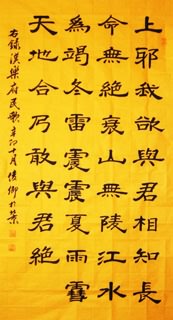 上耶我欲與君相知長
命無絕衰山無陵江水
為竭冬雷震震夏雨雪
天地合乃敢與君絕
右錄漢樂府民歌辛卯十月